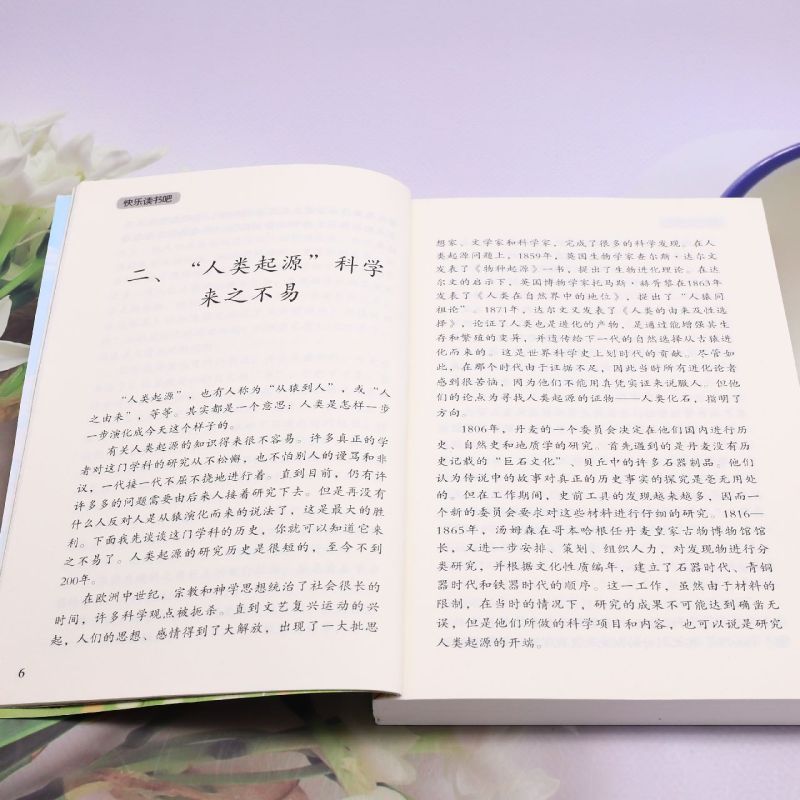 快乐读书吧
二、“人类起源”科学
来之不易
“人类起源”，也有人称为“从猿到人”，或“人
之由来”，等等。其实都是一个意思：人类是怎样一步
一步演化成今天这个样子的。
有关人类起源的知识得来很不容易。许多真正的学
者对这门学科的研究从不松懈，也不怕别人的谩骂和非
议，一代接一代不屈不挠地进行着。直到目前，仍有许
许多多的问题需要由后来人接着研究下去。但是再没有
什么人反对人是从猿演化而来的说法了，这是最大的胜
利。下面我先谈谈这门学科的历史，你就可以知道它来
之不易了。人类起源的研究历史是很短的，至今不到
200年。
在欧洲中世纪，宗教和神学思想统治了社会很长的
时间，许多科学观点被扼杀。直到文艺复兴运动的兴
起，人们的思想、感情得到了大解放，出现了一大批思
6
想家、文学家和科学家，完成了很多的科学发现。在人
类起源问题上，1859年，英国生物学家查尔斯·达尔文
发表了《物种起源》一书，提出了生物进化理论。在达
尔文的启示下，英国博物学家托马斯·赫胥黎在1863年
发表了《人类在自然界中的地位》，提出了“人猿同
祖论”。1871年，达尔文又发表了《人类的由来及性选
择》，论证了人类也是进化的产物，是通过能增强其生
存和繁殖的变异，并遗传给下一代的自然选择从古猿进
化而来的。这是世界科学史上划时代的贡献。尽管如
此，在那个时代由于证据不足，因此当时所有进化论者
感到很苦恼，因为他们不能用真凭实证来说服人。但他
们的论点为寻找人类起源的证物——人类化石，指明了
方向。
1806年，丹麦的一个委员会决定在他们国内进行历
史、自然史和地质学的研究。首先遇到的是丹麦没有历
史记载的“巨石文化”、贝丘中的许多石器制品。他们
认为传说中的故事对真正的历史事实的探究是毫无用处
的。但在工作期间，史前工具的发现越来越多，因而一
个新的委员会要求对这些材料进行仔细的研究。1816—
1865年，汤姆森在哥本哈根任丹麦皇家古物博物馆馆
长，又进一步安排、策划、组织人力，对发现物进行分
类研究，并根据文化性质编年，建立了石器时代、青铜
器时代和铁器时代的顺序。这一工作，虽然由于材料的
限制，在当时的情况下，研究的成果不可能达到确凿无
误，但是他们所做的科学项目和内容，也可以说是研究
人类起源的开端。